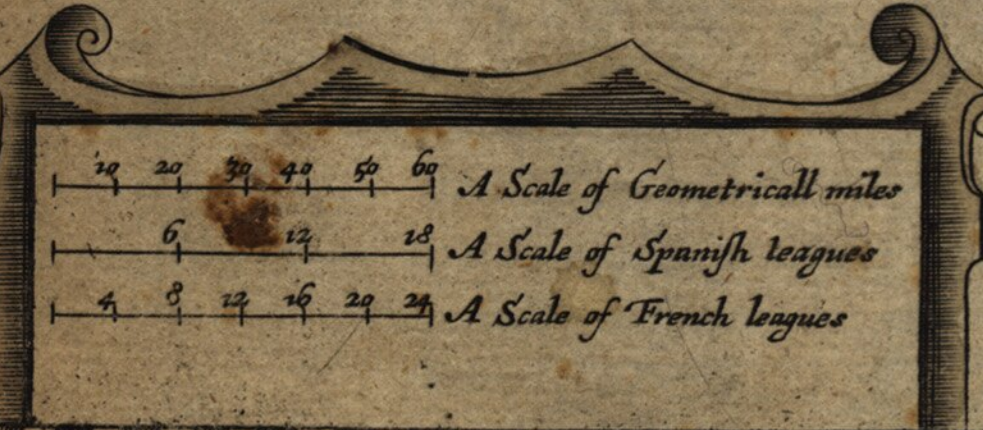 10 20 30 40 50 60 A Scale of Geometricall miles
6 12 18 A Scale of Spaniſh leagues
4 8 12 16 20 24 A Scale of French leagues